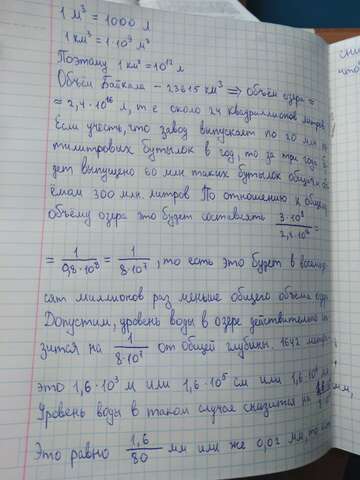 1 м³ = 1000 л
1 км³ = 1·10⁹ м³
Поэтому 1 км³ = 10¹² л
Объём Байкала – 23615 км³ ⇒ объём озера ≈
≈ 2,4·10¹⁶ л, т.е около 24 квадриллионов литров
Если учесть, что завод выпускает по 20 млн
тилитровых бутылок в год, то за три года
дет выпущено 60 млн таких бутылок общим
ёмам 300 млн. литров По отношению к общему
объёму озера это будет составлять 3·10⁸/2,4·10¹⁶ =
= 1/0,8·10⁸ = 1/8·10⁷, то есть это будет в восемьде
сят миллионов раз меньше общего объёма озера
Допустим, уровень воды в озере действительно
зится на 1/8·10⁷ от общей глубины. 1642 метра
это 1,6·10³ м или 1,6·10⁵ см или 1,6·10⁶ мм,
Уровень воды в таком случае снизится на
Это равно 1,6/80 мм или же 0,02 мм, то